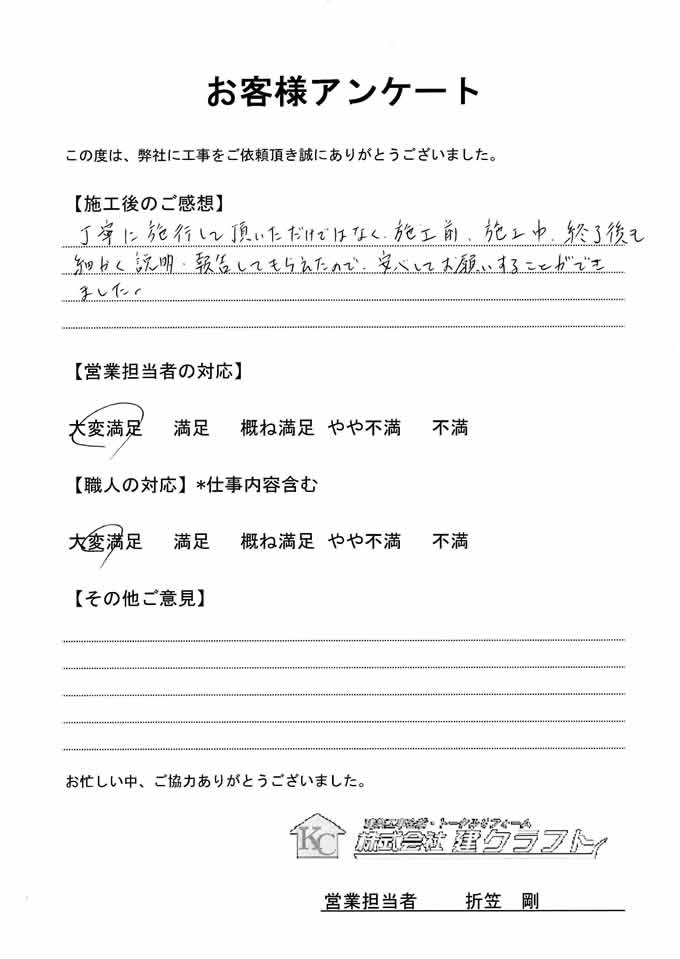 お客様アンケート
この度は、弊社に工事をご依頼頂き誠にありがとうございました。
【施工後のご感想】
丁寧に施行して頂いただけではなく、施工前、施工中、終了後も
細かく説明・報告してもらえたので、安心してお願いすることができ
ました。
【営業担当者の対応】
大変満足 満足 概ね満足 やや不満 不満
【職人の対応】*仕事内容含む
大変満足 満足 概ね満足 やや不満 不満
【その他ご意見】
お忙しい中、ご協力ありがとうございました。
KC
・トータルリフォーム
株式会社 建クラフト
営業担当者 折笠 剛